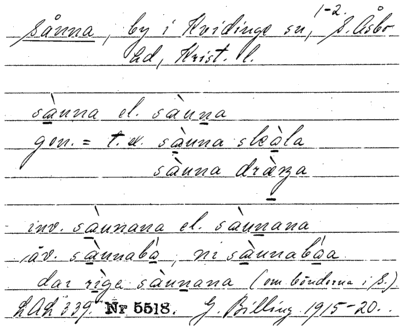 1-2.
Sånna, by i Hvidinge sn, S. Åsbo
hd, Krist. l.
sànna el. sànna
gen. = t. ex. sànna skola
sànna drænga
inv. sànnana el. sànnana
äv. sànnabå, ni sànnabåa
dar rige sànnana (om bönderna i S.)
LAL 339. Nr 5518. G. Billing 1915-20.